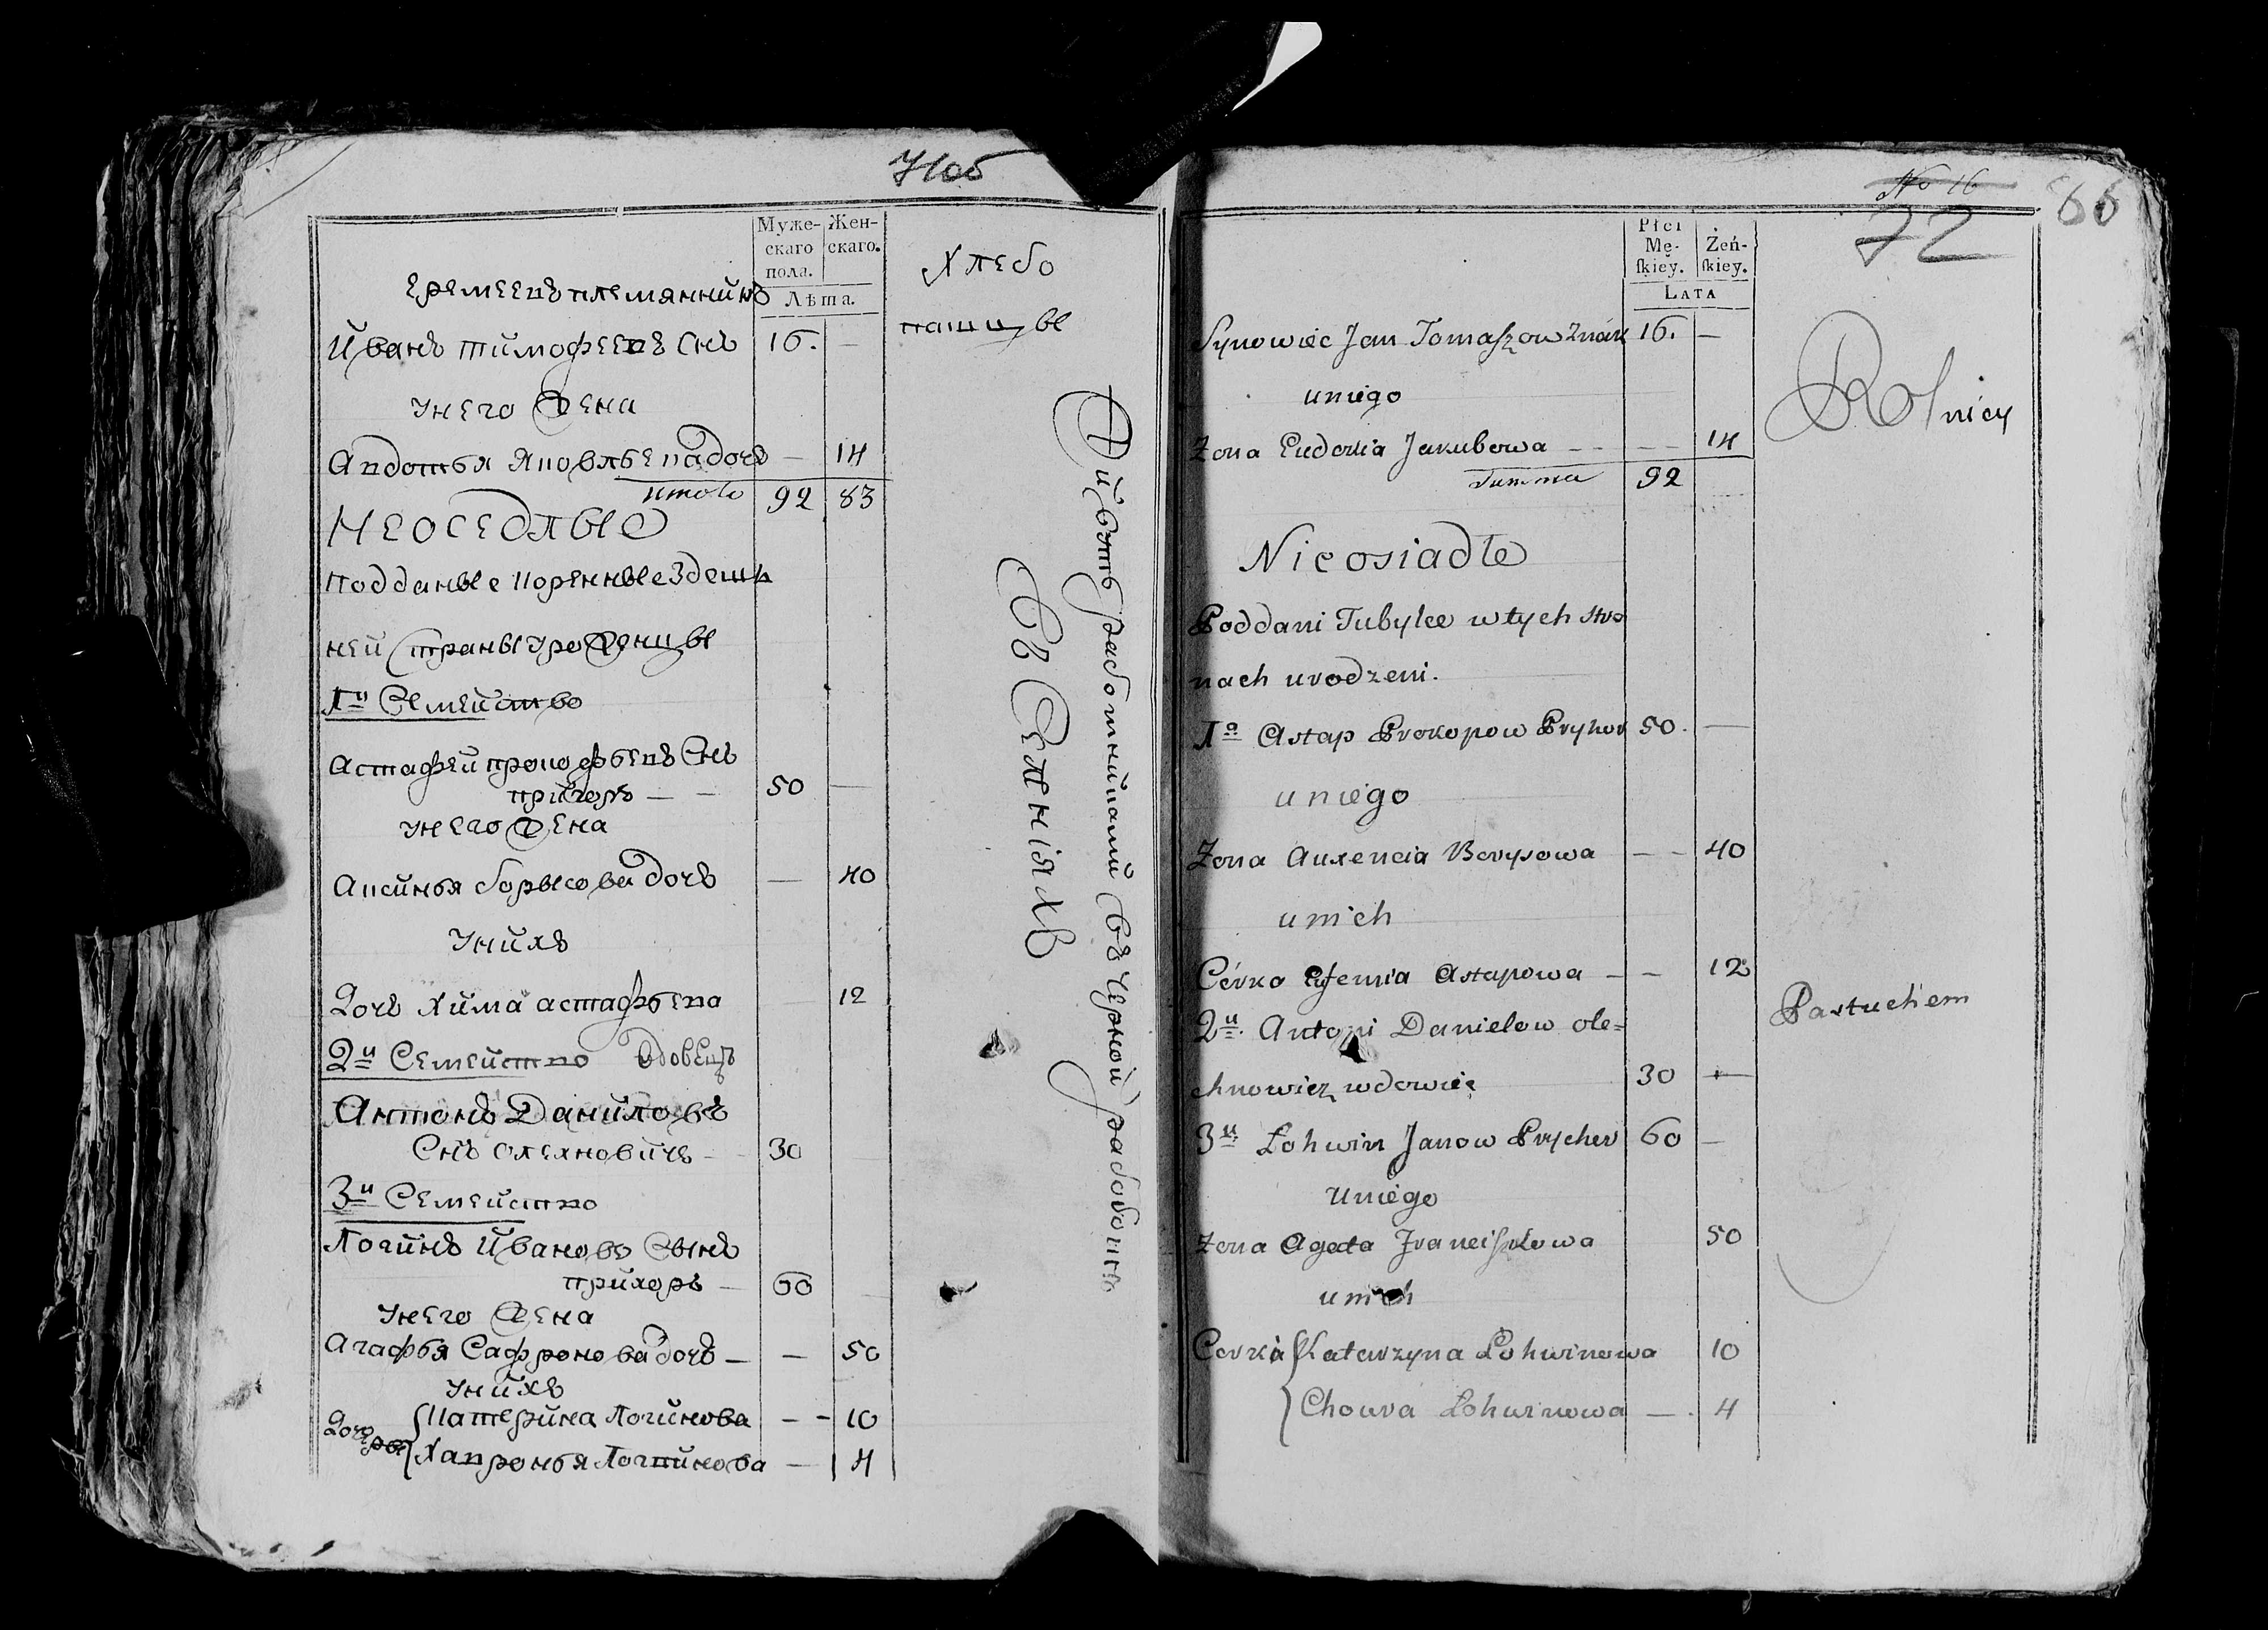 71об
Муже-
скаго
пола.
Жен-
скаго.
Лѣта.
Еремеевъ племянникъ
Иванъ тимофеевъ Снъ 16. —
Унего жена
Авдотья Яковлевна дочь — 14
итого 92 83
Неоседлые
Подданые коренные здешъ
ней страны уроженцы
1и Семейство
Астафей прокофьевъ Снъ
прихоръ — — 50 —
унего жена
Аксинья борысова дочь — 40
Унихъ
Дочь Хима астафьева — 12
2и Семейство вдовецъ
Антонъ Даниловъ
Снъ олехновичъ — 30
3и Семейство
Логинъ Ивановъ Сынъ
прихоръ — 60
Унего жена
Агафья Сафронова дочь — — 50
унихъ
Дочеры { Катерина Логинова — — 10
{ Хавронья Логинова — 4
Хлебо
пашцы
въ Селніяхъ
работниками въ черной работе
No 16
72
66
Płci
Mę-
ſkiey.
Żeń-
ſkiey.
Lata
Synowiec Jan Tomaſzow Znák 16. —
uniego
Zona Eudokia Jakubowa — — — 14
Summa 92
Nieosiadłe
Poddani Tubylce w tych stro
nach urodzeni.
1a Astap Prokopow Prychor 50. —
uniego
Zona Auxencia Borysowa — — 40
unich
Córka Efemia Astapowa — — 12
2u. Antoni Danielow Ole=
chnowicz wdowiec 30 —
3u Łohwin Janow Prycher 60 —
uniego
Zona Agata Franciſzkowa 50
unich
Corka { Katarzyna Łohwinowa 10
{ Chowra Łohwinowa — . 4
Rolnicy
Pastuchem